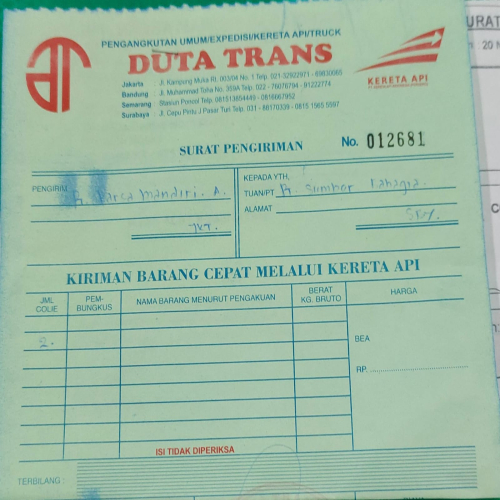 PENGANGKUTAN UMUM/EXPEDISI/KERETA API/TRUCK
DUTA TRANS
KERETA API
Jakarta : Jl. Kampung Muka Rt. 003/04 No. 1 Telp. 021-32922971 - 69830065
Bandung : Jl. Muhammad Toha No. 359A Telp. 022 - 76076794 - 91222774
Semarang : Stasiun Poncol Telp. 081513654449 - 0816667952
Surabaya : Jl. Cepu Pintu J Pasar Turi Telp. 031 - 88170339 - 0815 1565 5597
SURAT PENGIRIMAN No. 012681
PENGIRIM
Mandiri. A.
KEPADA YTH,
TUAN/PT. Sumber
ALAMAT
SBY.
KIRIMAN BARANG CEPAT MELALUI KERETA API
JML COLIE
PEM-BUNGKUS
NAMA BARANG MENURUT PENGAKUAN
BERAT KG. BRUTO
HARGA
2.
BEA
RP.
ISI TIDAK DIPERIKSA
TERBILANG :
URAT
20